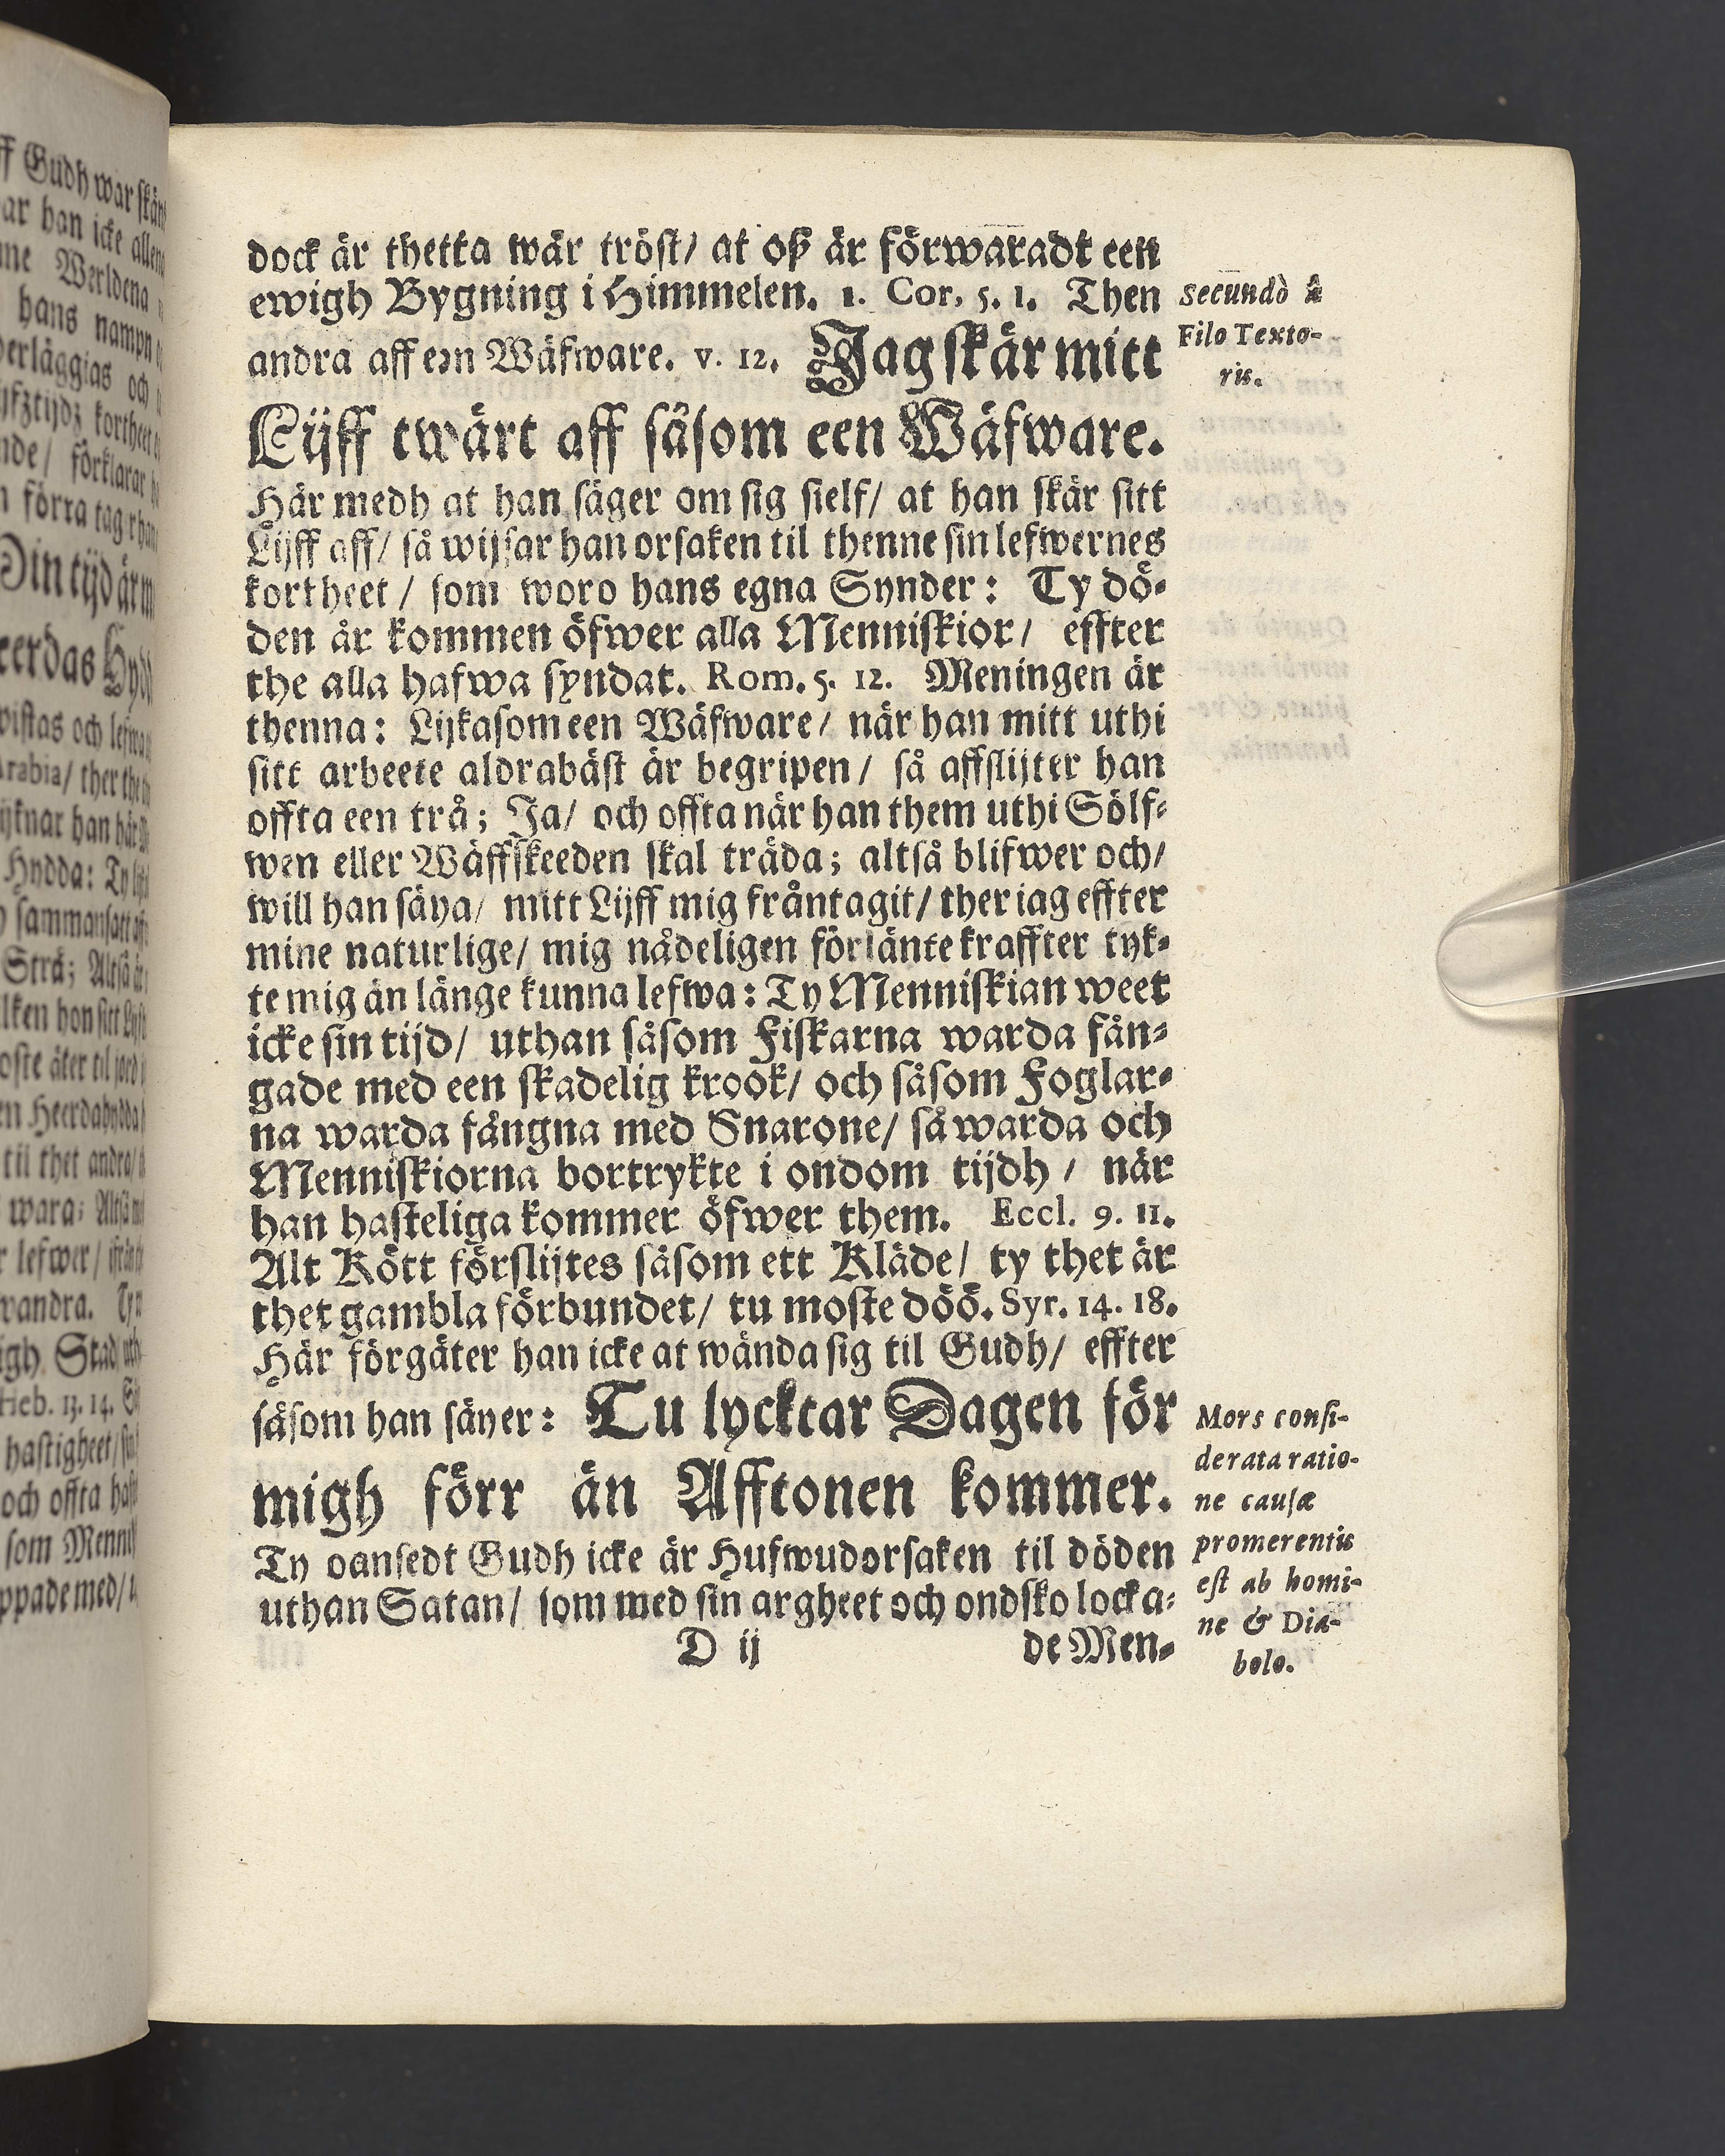 dock är thetta wår tröst/ at oß är förwaradt een
ewigh Bygning i Himmelen. 1. Cor. 5. 1. Then
andra aff een Wäfware. v. 12. Jag skär mitt
Lijff twärt aff såsom een Wäfware.
Här medh at han säger om sig sielf/ at han skär sitt
Lijff aff/ så wijsar han orsaken til thenne sin lefwernes
kortheet / som woro hans egna Synder: Ty dö-
den är kommen öfwer alla Menniskior/ effter
the alla hafwa syndat. Rom. 5. 12. Meningen är
thenna: Lijkasom een Wäfware/ när han mitt uthi
sitt arbeete aldrabäst är begripen/ så affslijter han
offta een trå; Ja/ och offta när han them uthi Sölf-
wen eller Wäffskeeden skal träda; altså blifwer och/
will han säya/ mitt Lijff mig fråntagit/ ther iag effter
mine naturlige/ mig nådeligen förlänte kraffter tyk-
te mig än länge kunna lefwa: Ty Menniskian weet
icke sin tijd/ uthan såsom Fiskarna warda fån-
gade med een skadelig krook/ och såsom Foglar-
na warda fångna med Snarone/ så warda och
Menniskiorna bortrykte i ondom tijdh / när
han hasteliga kommer öfwer them. Eccl. 9. 11.
Alt Kött förslijtes såsom ett Kläde/ ty thet är
thet gambla förbundet/ tu moste döö. Syr. 14. 18.
Här förgäter han icke at wända sig til Gudh/ effter
såsom han säyer: Tu lycktar Dagen för
migh förr än Afftonen kommer.
Ty oansedt Gudh icke är Hufwudorsaken til döden
uthan Satan/ som med sin argheet och ondsko locka-
D ij
de Men-
Secundò â
Filo Texto-
ris.
Mors consi-
derata ratio-
ne causæ
promerentis
est ab homi-
ne & Dia-
bolo.